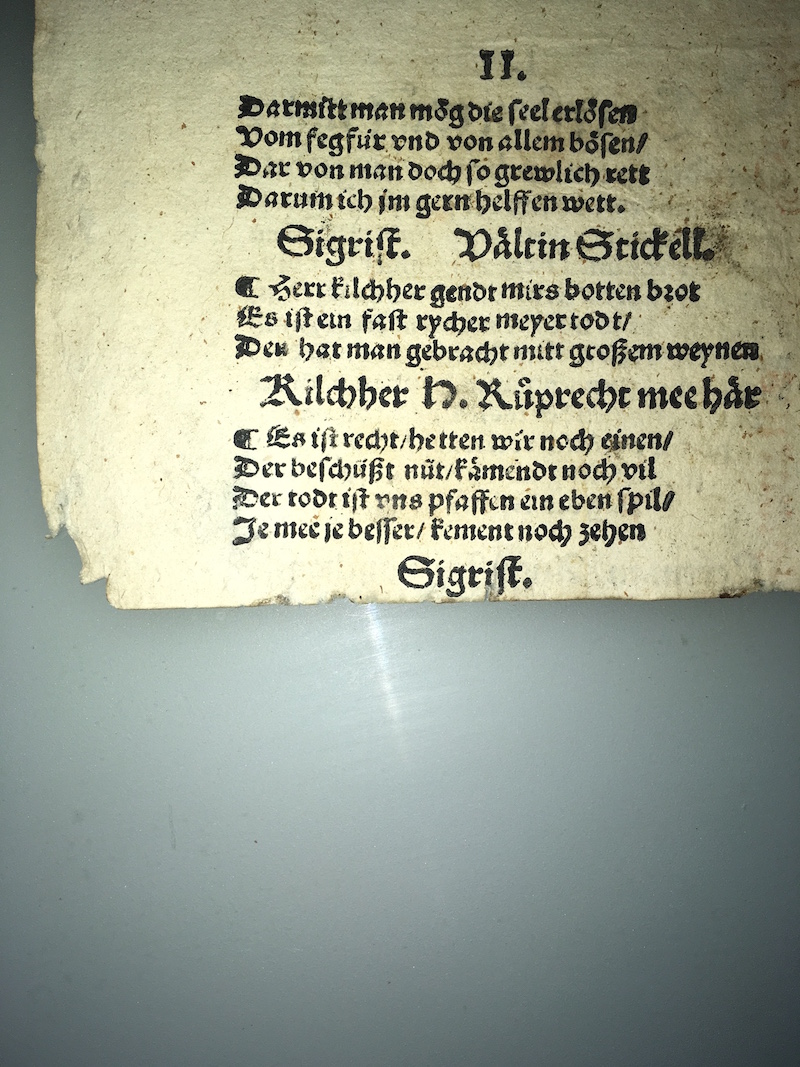 II.
Darmitt man mög die seel erlösen
Vom fegfür vnd von allem bösen/
Dar von man doch so grewlich rett
Darum ich jm gern helffen wett.
Sigrist. Vältin Stickell.
¶ Herr kilchher gendt mirs botten brot
Es ist ein fast rycher meyer todt/
Den hat man gebracht mitt großem weynen
Kilchher H. Růprecht mee här
¶ Es ist recht/hetten wir noch einen/
Der beschüßt nüt/kämendt noch vil
Der todt ist vns pfaffen ein eben spil/
Je mee je besser/ kement noch zehen
Sigrist.